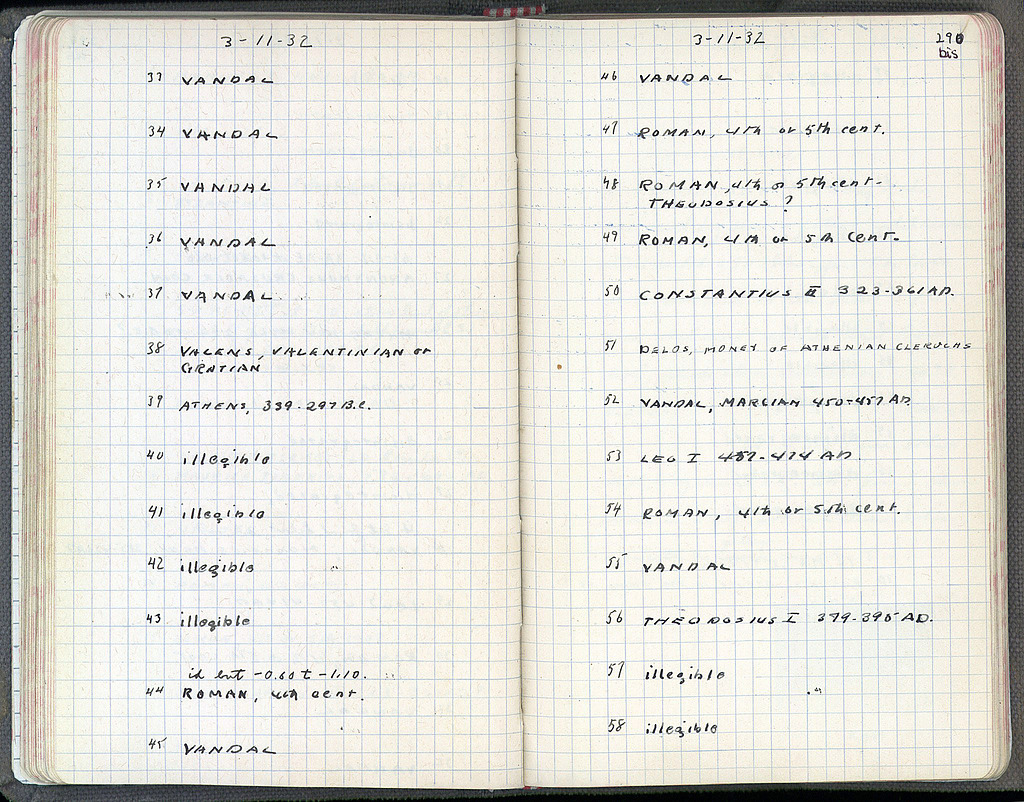 3-11-32
33 VANDAL
34 VANDAL
35 VANDAL
36 VANDAL
37 VANDAL
38 VALENS, VALENTINIAN or
GRATIAN
39 ATHENS, 339-297 B.C.
40 illegible
41 illegible
42 illegible
43 illegible
id ent -0.60 t -1.10.
44 ROMAN, 4th cent.
45 VANDAL
3-11-32
290
bis
46 VANDAL
47 ROMAN, 4th or 5th cent.
48 ROMAN, 4th or 5th cent-
THEODOSIUS ?
49 ROMAN, 4th or 5th cent.
50 CONSTANTIUS II 323-361 AD.
51 DELOS, MONEY OF ATHENIAN CLERUCHS
52 VANDAL, MARCIAN 450-457 AD
53 LEO I 457-474 AD
54 ROMAN, 4th or 5th cent.
55 VANDAL
56 THEODOSIUS I 379-395 AD.
57 illegible
58 illegible